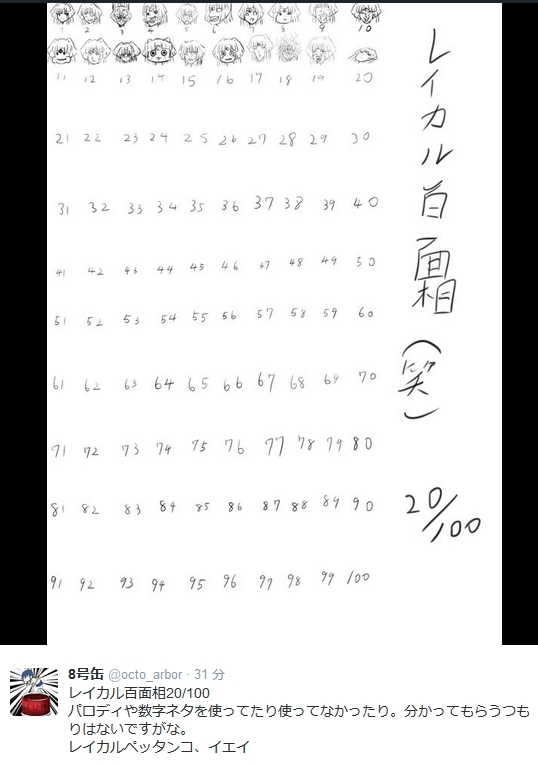 1 2 3 4 5 6 7 8 9 10
11 12 13 14 15 16 17 18 19 20
21 22 23 24 25 26 27 28 29 30
31 32 33 34 35 36 37 38 39 40
41 42 43 44 45 46 47 48 49 50
51 52 53 54 55 56 57 58 59 60
61 62 63 64 65 66 67 68 69 70
71 72 73 74 75 76 77 78 79 80
81 82 83 84 85 86 87 88 89 90
91 92 93 94 95 96 97 98 99 100
レイカル百面相(笑)
20/100
8号缶 @octo_arbor · 31 分
レイカル百面相20/100
パロディや数字ネタを使ってたり使ってなかったり。分かってもらうつも
りはないですがな。
レイカルペッタンコ、イエイ